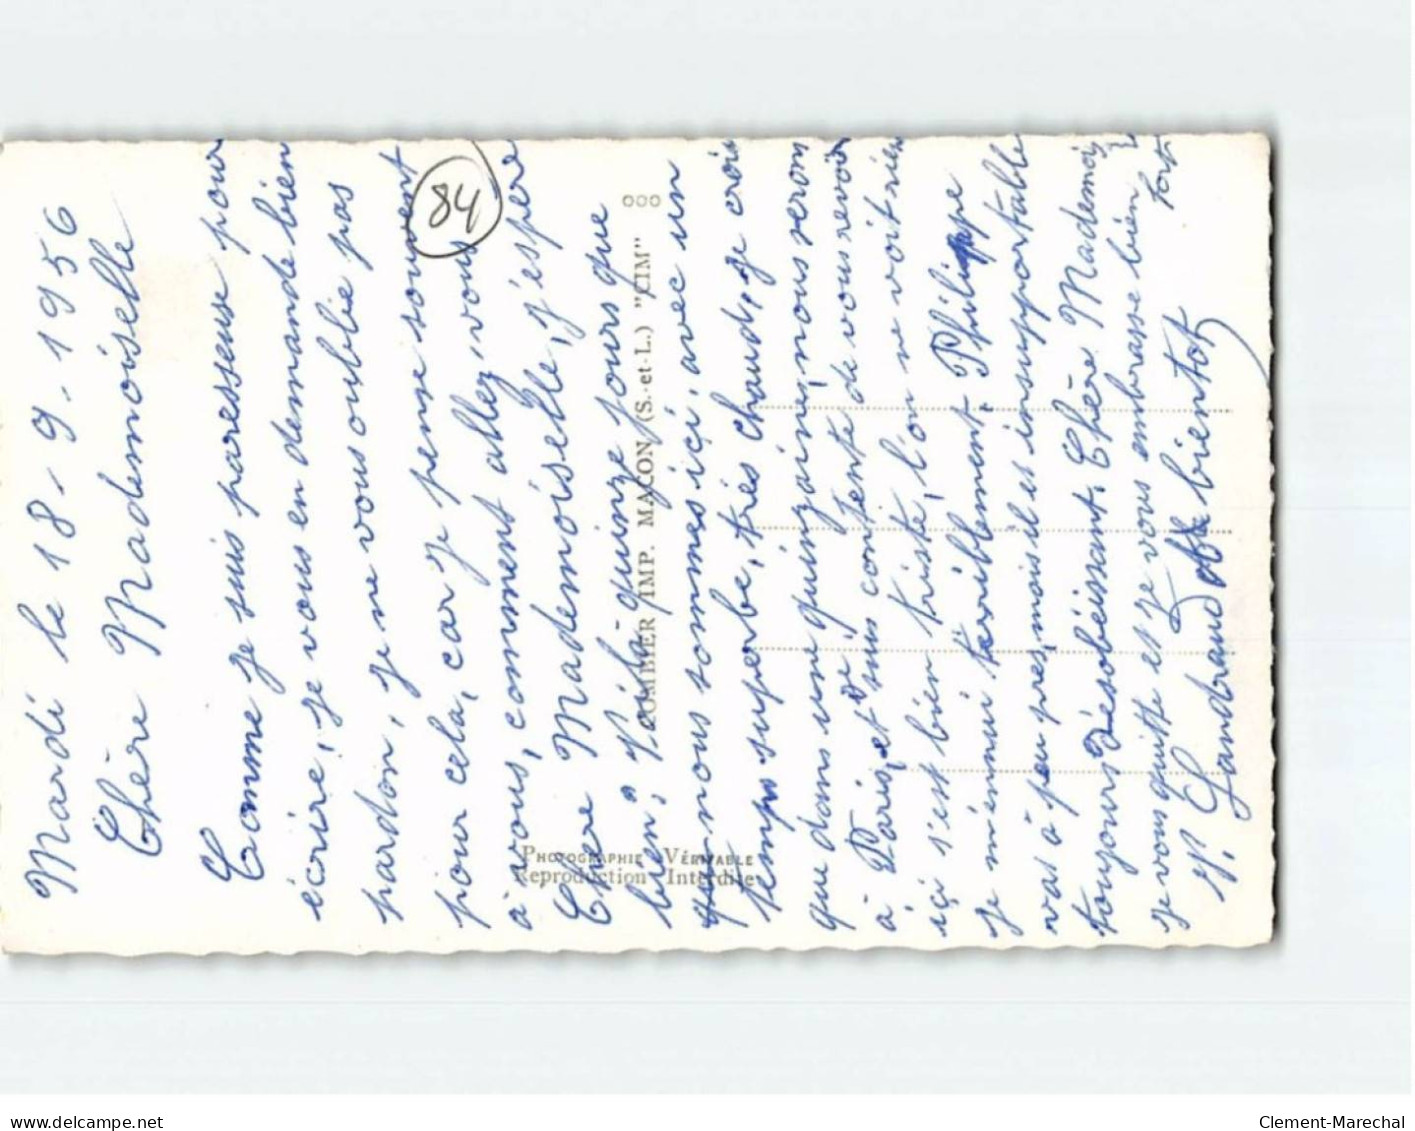 Mardi le 18-9-1956
Chère Mademoiselle
Comme je suis paresseuse pour
écrire, je vous en demande bien
pardon, je ne vous oublie pas
pour cela, car je pense souvent
à vous, comment allez-vous
Chère Mademoiselle, j'espère
bien, Voilà quinze jours que
que nous sommes içi, avec un
temps superbe, très chaud, je crois
que dans une quinzaine, nous serons
à Paris, et je suis contente de vous revoir
içi s'est bien triste, l'on ne voit rien
je m'ennui terriblement, Philippe
vas à peu pres, mais il es insupportable
toujours désobéissant. Chère Mademois
je vous quitte et je vous embrasse bien
fort
à bientot
Y. Landraud
84
PHOTOGRAPHIE VÉRITABLE
Reproduction Interdite
COMBIER IMP. MACON (S.-et-L.) "CIM"
delcampe.net
Clement-Marechal